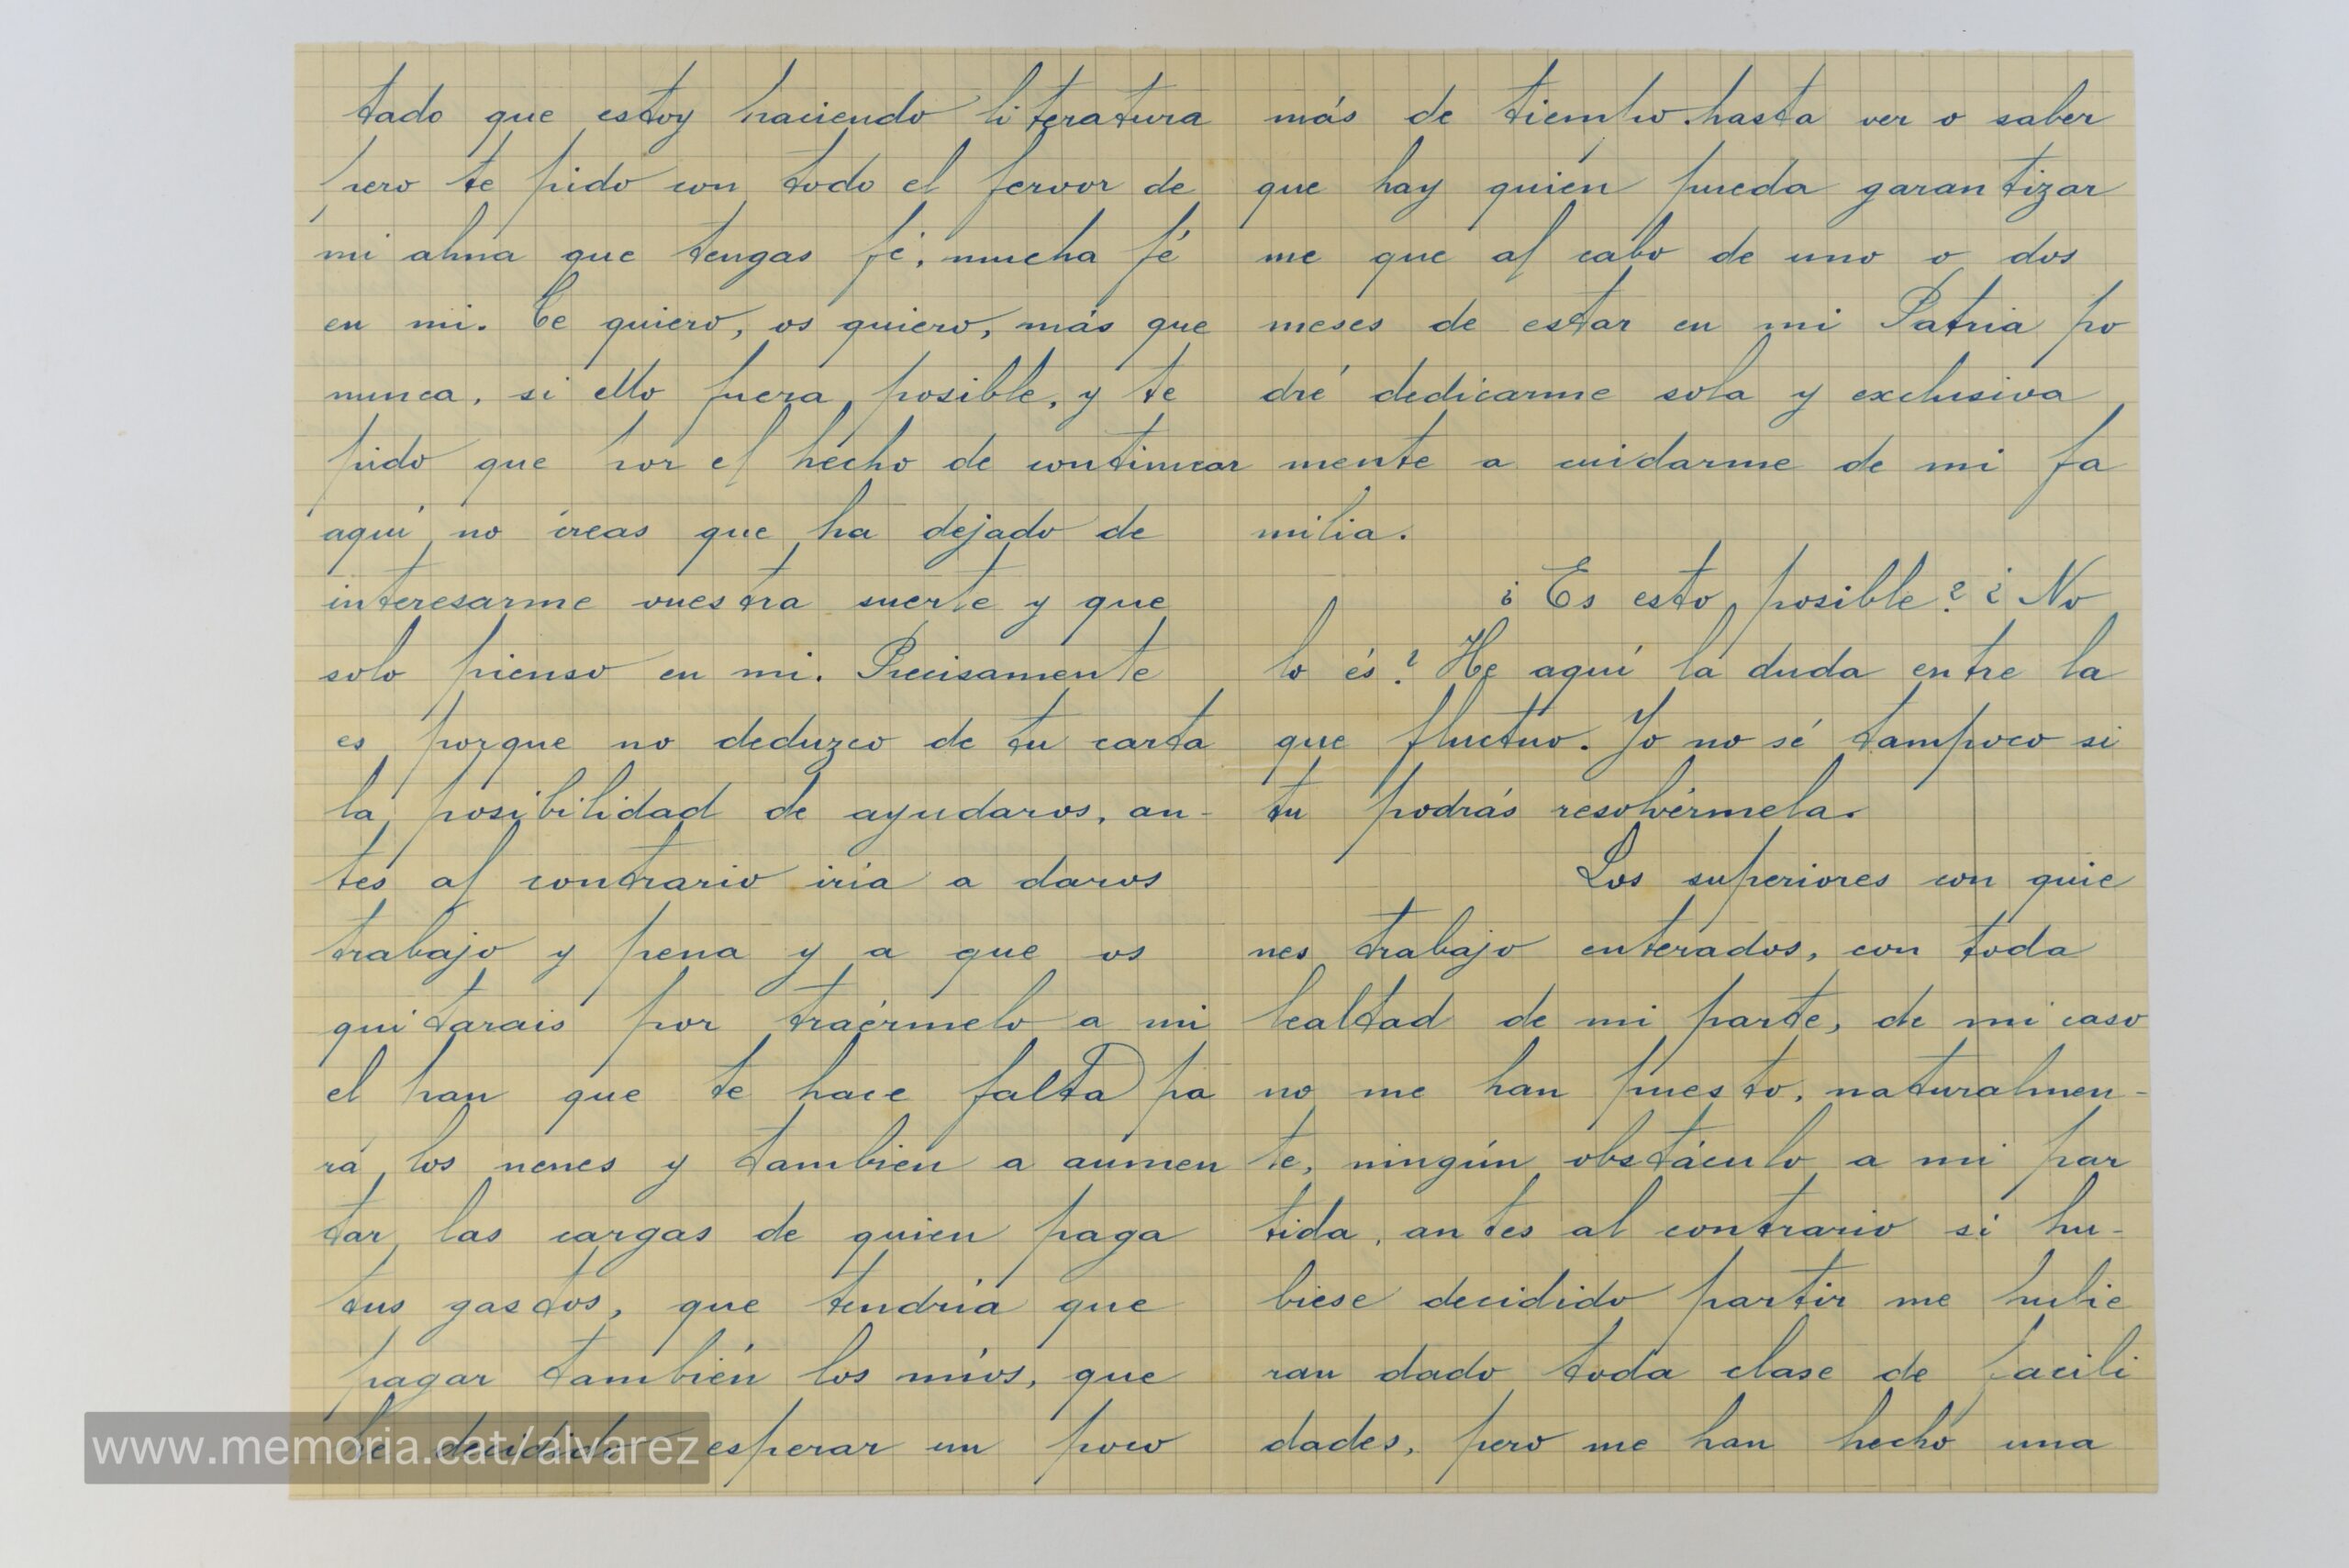 tado que estoy haciendo literatura
pero te pido con todo el fervor de
mi alma que tengas fé, mucha fé
en mi. Te quiero, os quiero, más que
nunca, si ello fuera posible, y te
pido que por el hecho de continuar
aquí no creas que ha dejado de
interesarme vuestra suerte y que
solo pienso en mi. Precisamente
es porque no deduzco de tu carta
la posibilidad de ayudaros, an-
tes al contrario iria a daros
trabajo y pena y a que os
quitarais por traérmelo a mi
el pan que te hace falta pa
ra los nenes y tambien a aumen
tar las cargas de quien paga
tus gastos, que tendría que
pagar también los mios, que
he decidido esperar un poco
más de tiempo hasta ver o saber
que hay quién pueda garantizar
me que al cabo de uno o dos
meses de estar en mi Patria po
dré dedicarme sola y exclusiva
mente a cuidarme de mi fa
milia.
¿Es esto posible? ¿No
lo és? He aquí la duda entre la
que fluctúo. Yo no sé tampoco si
tu podrás resolvérmela.
Los superiores con quie
nes trabajo enterados, con toda
lealtad de mi parte, de mi caso
no me han puesto, naturalmen-
te, ningún obstáculo a mi par
tida, antes al contrario si hu-
biese decidido partir me hubie
ran dado toda clase de facili
dades, pero me han hecho una
www.memoria.cat/alvarez